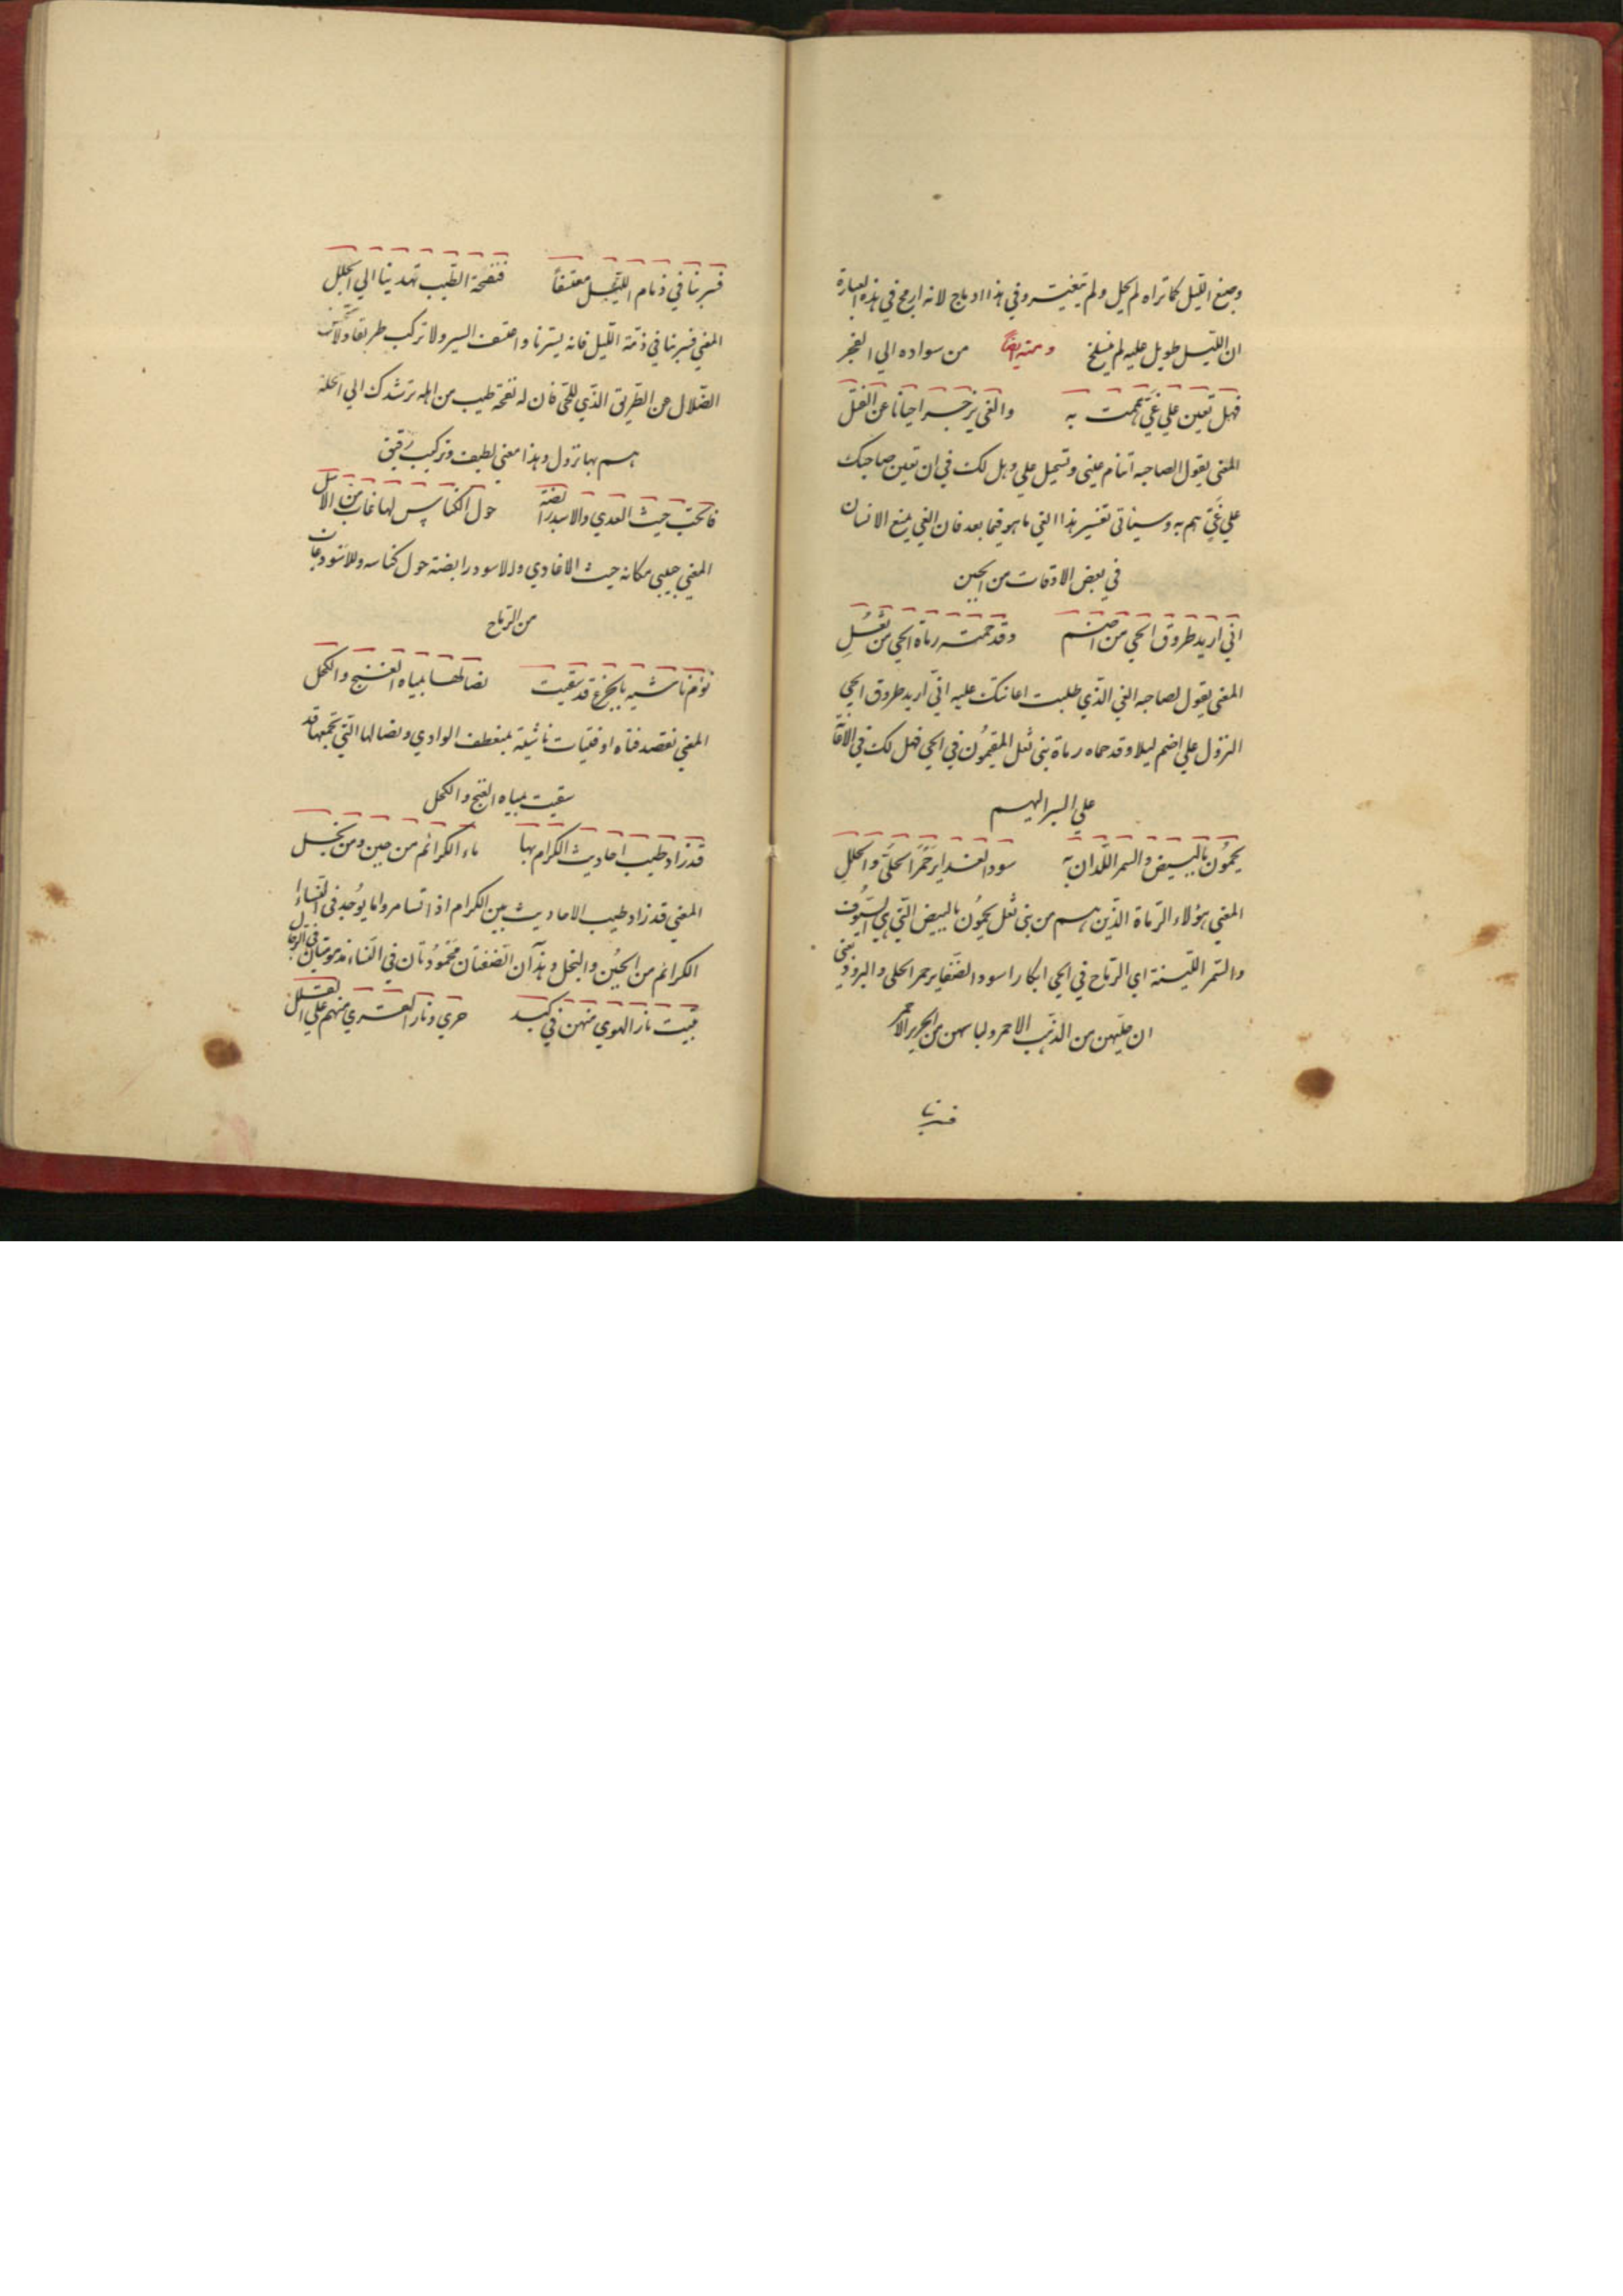 وصبغ الليل كما تراه لم يحل ولم يتغير وفي هذا ادماج لانه ادمج في هذه العبارة
ان الليل طويل عليه لم ينسلخ ومنه ايضاً من سواده الي الفجر
فهل تعين علي غيّ هممت به والغي يزجر احيانا عن الفشل
المعني يقول لصاحبه اتنام عيني وتستحيل علي وهل لك في ان تعين صاحبك
علي غيّ هم به وسياتي تفسير هذا الغي ما هو فيما بعد فان الغي يمنع الانسان
في بعض الاوقات من الجبن
اني اريد طروق الحي من اضم وقد حمته رماة الحي من ثعُلِ
المعني يقول لصاحبه الغي الذي طلبت اعانتك عليه اني اريد طروق الحي
النزول علي اضم ليلا وقد حماه رماة بني ثعل المقيمُون في الحي فهل لك في
علي السير اليهم
يحمُون بالبيض والسمر اللدان به سود الغدايرَ حمرَ الحلي والحللِ
المعني هؤلاء الرماة الذين هم من بني ثعل يحمُون بالبيض التي هي السيُوف
والسمر اللينة اي الرماح في الحي ابكارا سود الضفاير حمر الحلي والبرود يعني
ان حليهن من الذهب الاحمر ولباسهن من الحرير الاحمر
فسربنا
فسربنا في ذمام الليل معتسفاً فنفحة الطيب تهدينا الي الحلل
المعني فسربنا في ذمة الليل فانه يسترنا واعتسف السير ولا تركب طريقا ولا
الضلال عن الطريق الذي للحي فان له نفحة طيب من اهله ترشدك الي الحلة
هم بها نزول وهذا معني لطيف وتركيب رقيق
فالحب حيث العدي والاسد رابضة حول الكناس لها غاب من الاسل
المعني حبيبي مكانه حيث الاعادي والاسود رابضة حول كناسه وللاسود غابات
من الرماح
نؤم ناشية بالجزع قد سقيت نصالها بمياه الغنج والكحل
المعني نقصد فتاة او فتيات ناشية بمنعطف الوادي ونصالها التي تحميها قد
سقيت بمياه الغنج والكحل
قد زاد طيب احاديث الكرام بها ماء الكرائم من جبن ومن بخل
المعني قد زاد طيب الاحاديث بين الكرام اذا تسامروا ما يوُجد في النساء
الكرائم من الجبُن والبخل وهذآن الصفتان محمُودتان في النساء مذمومتان في الرجال
تبيت نار الهوي منهن في كبد حري ونار القري منهم علي القلل